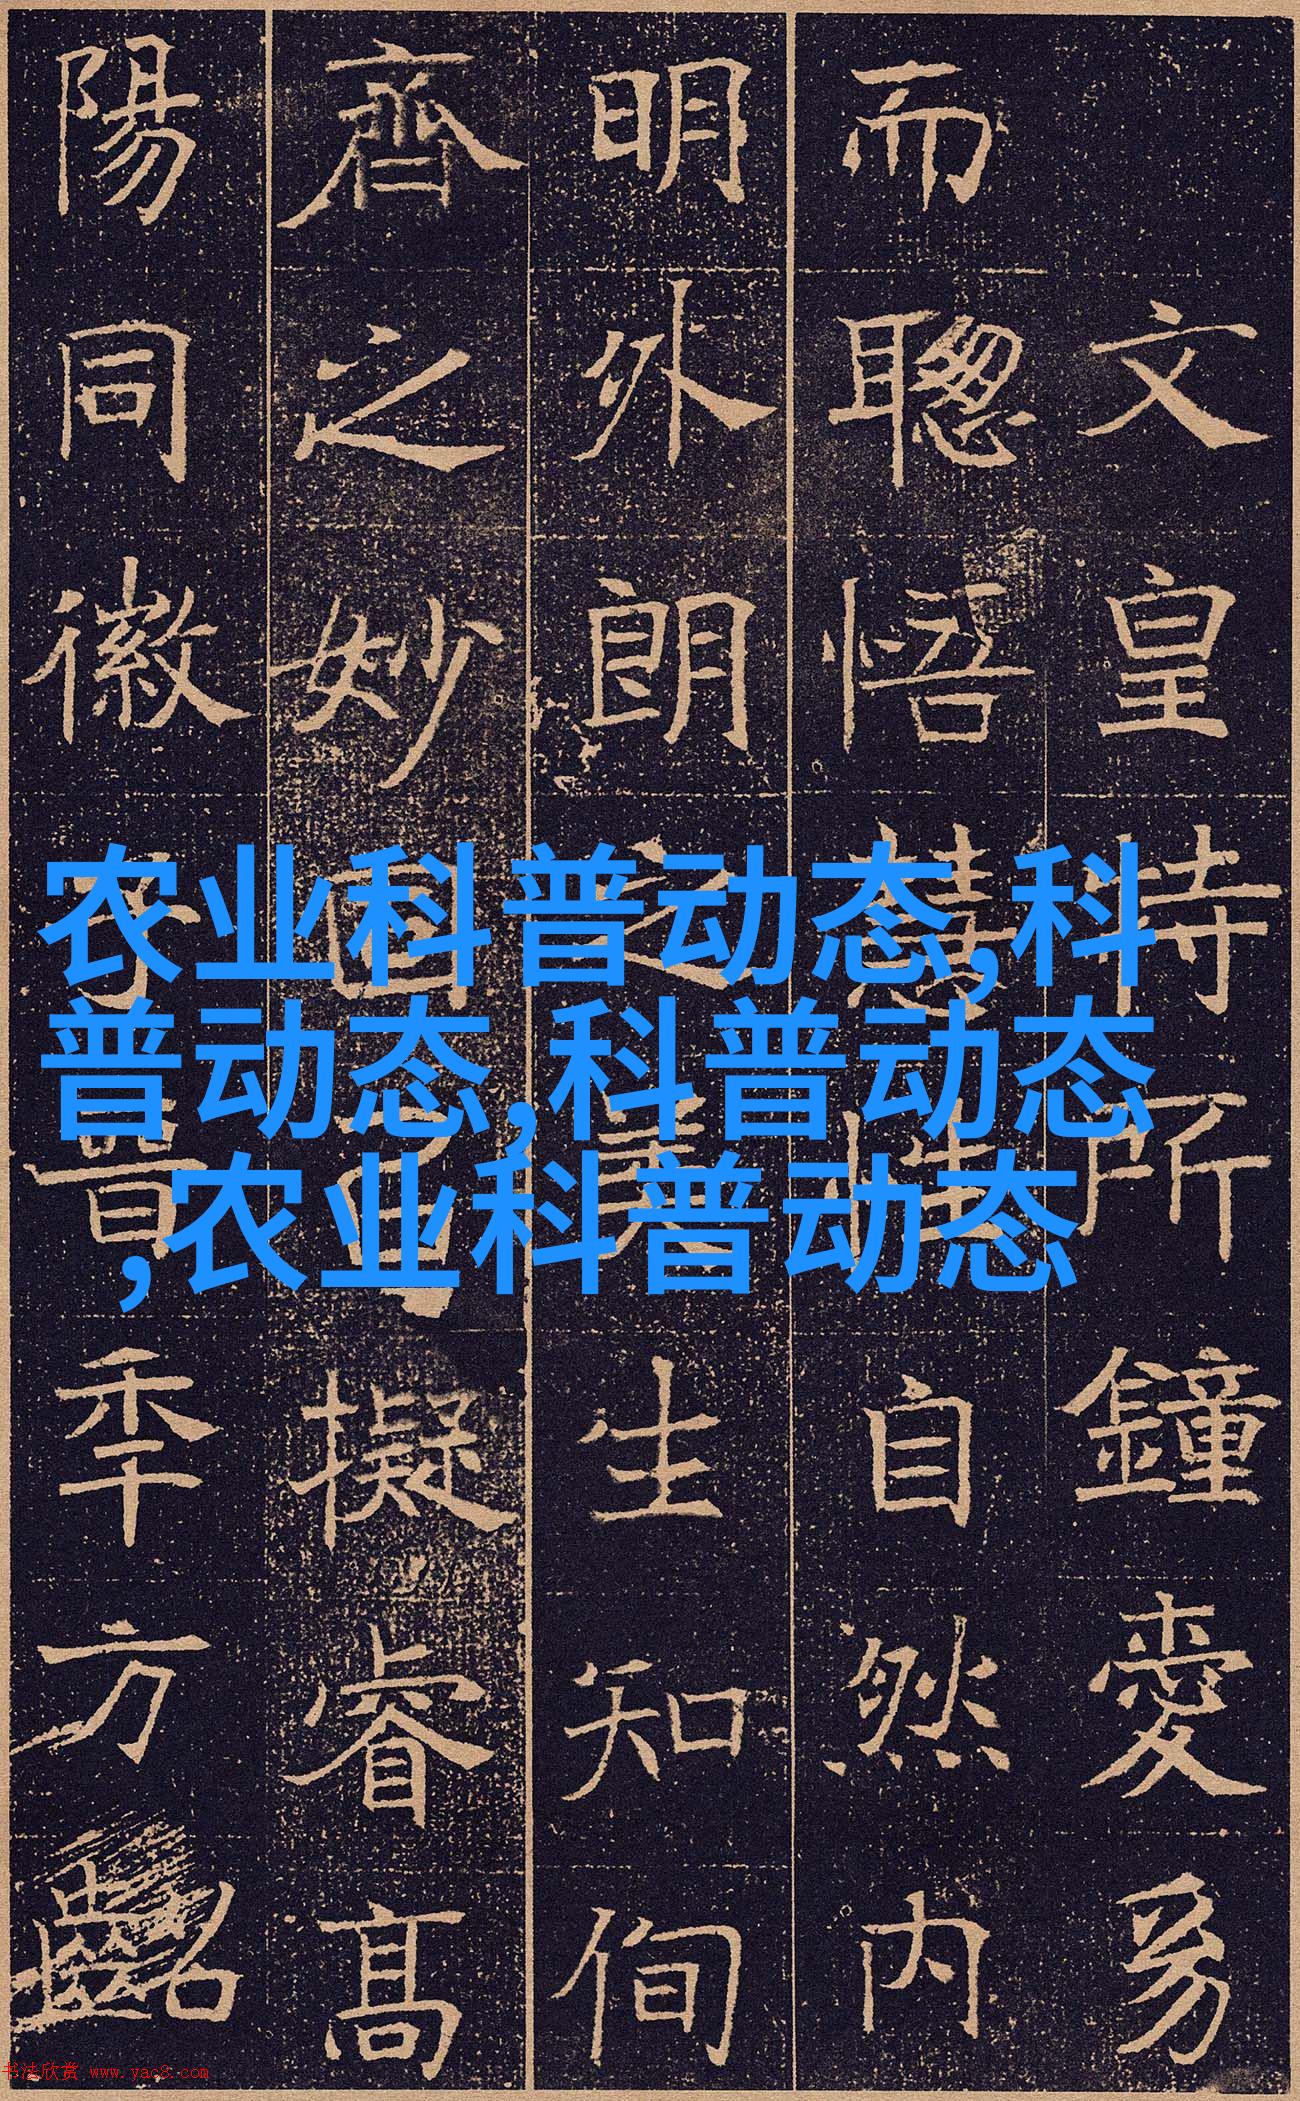 文皇特所鐘愛
而聰悟慧性自然内
明外朗之生知侚
齊之妙擬睿髙
陽同徽子晉季方齠
农业科普动态,科
普动态,科普动态
,农业科普动态
书法欣赏 www.yac8.com